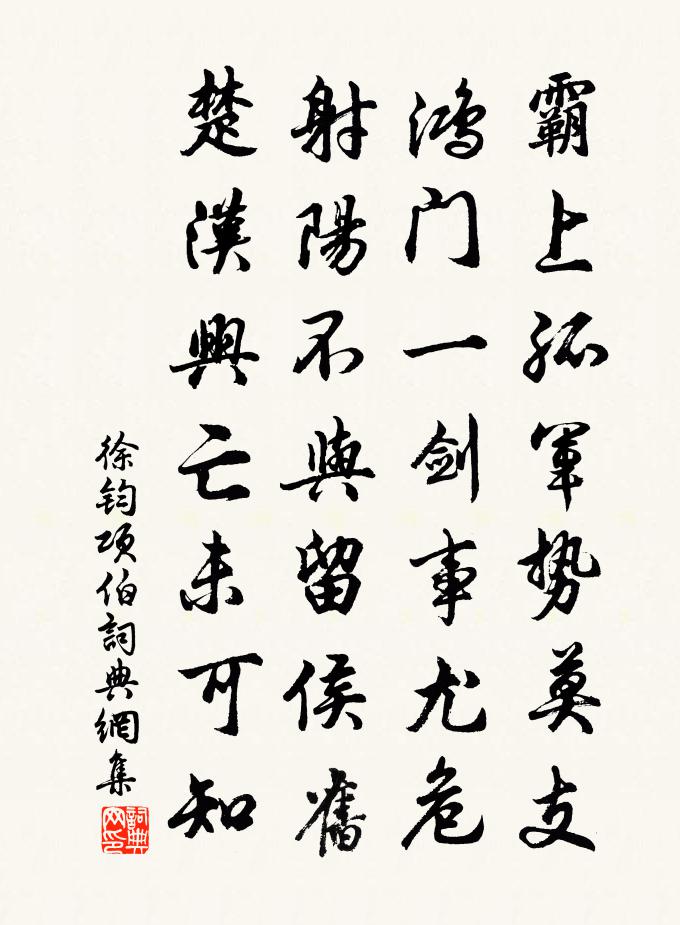 霸上孤軍勢莫支
鴻门一剑事尤危
射陽不與留侯舊
楚漢興亡未可知
徐鈞項伯詞典網集
詞典网印